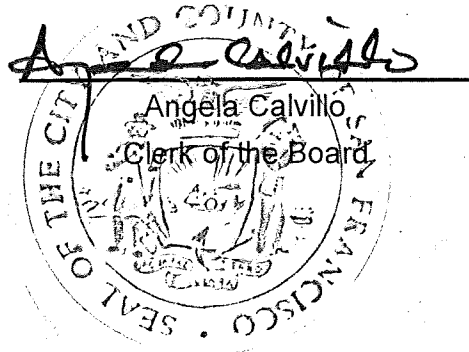 Angela Calvillo
Angela Calvillo
Clerk of the Board
SEAL OF THE CITY AND COUNTY OF SAN FRANCISCO